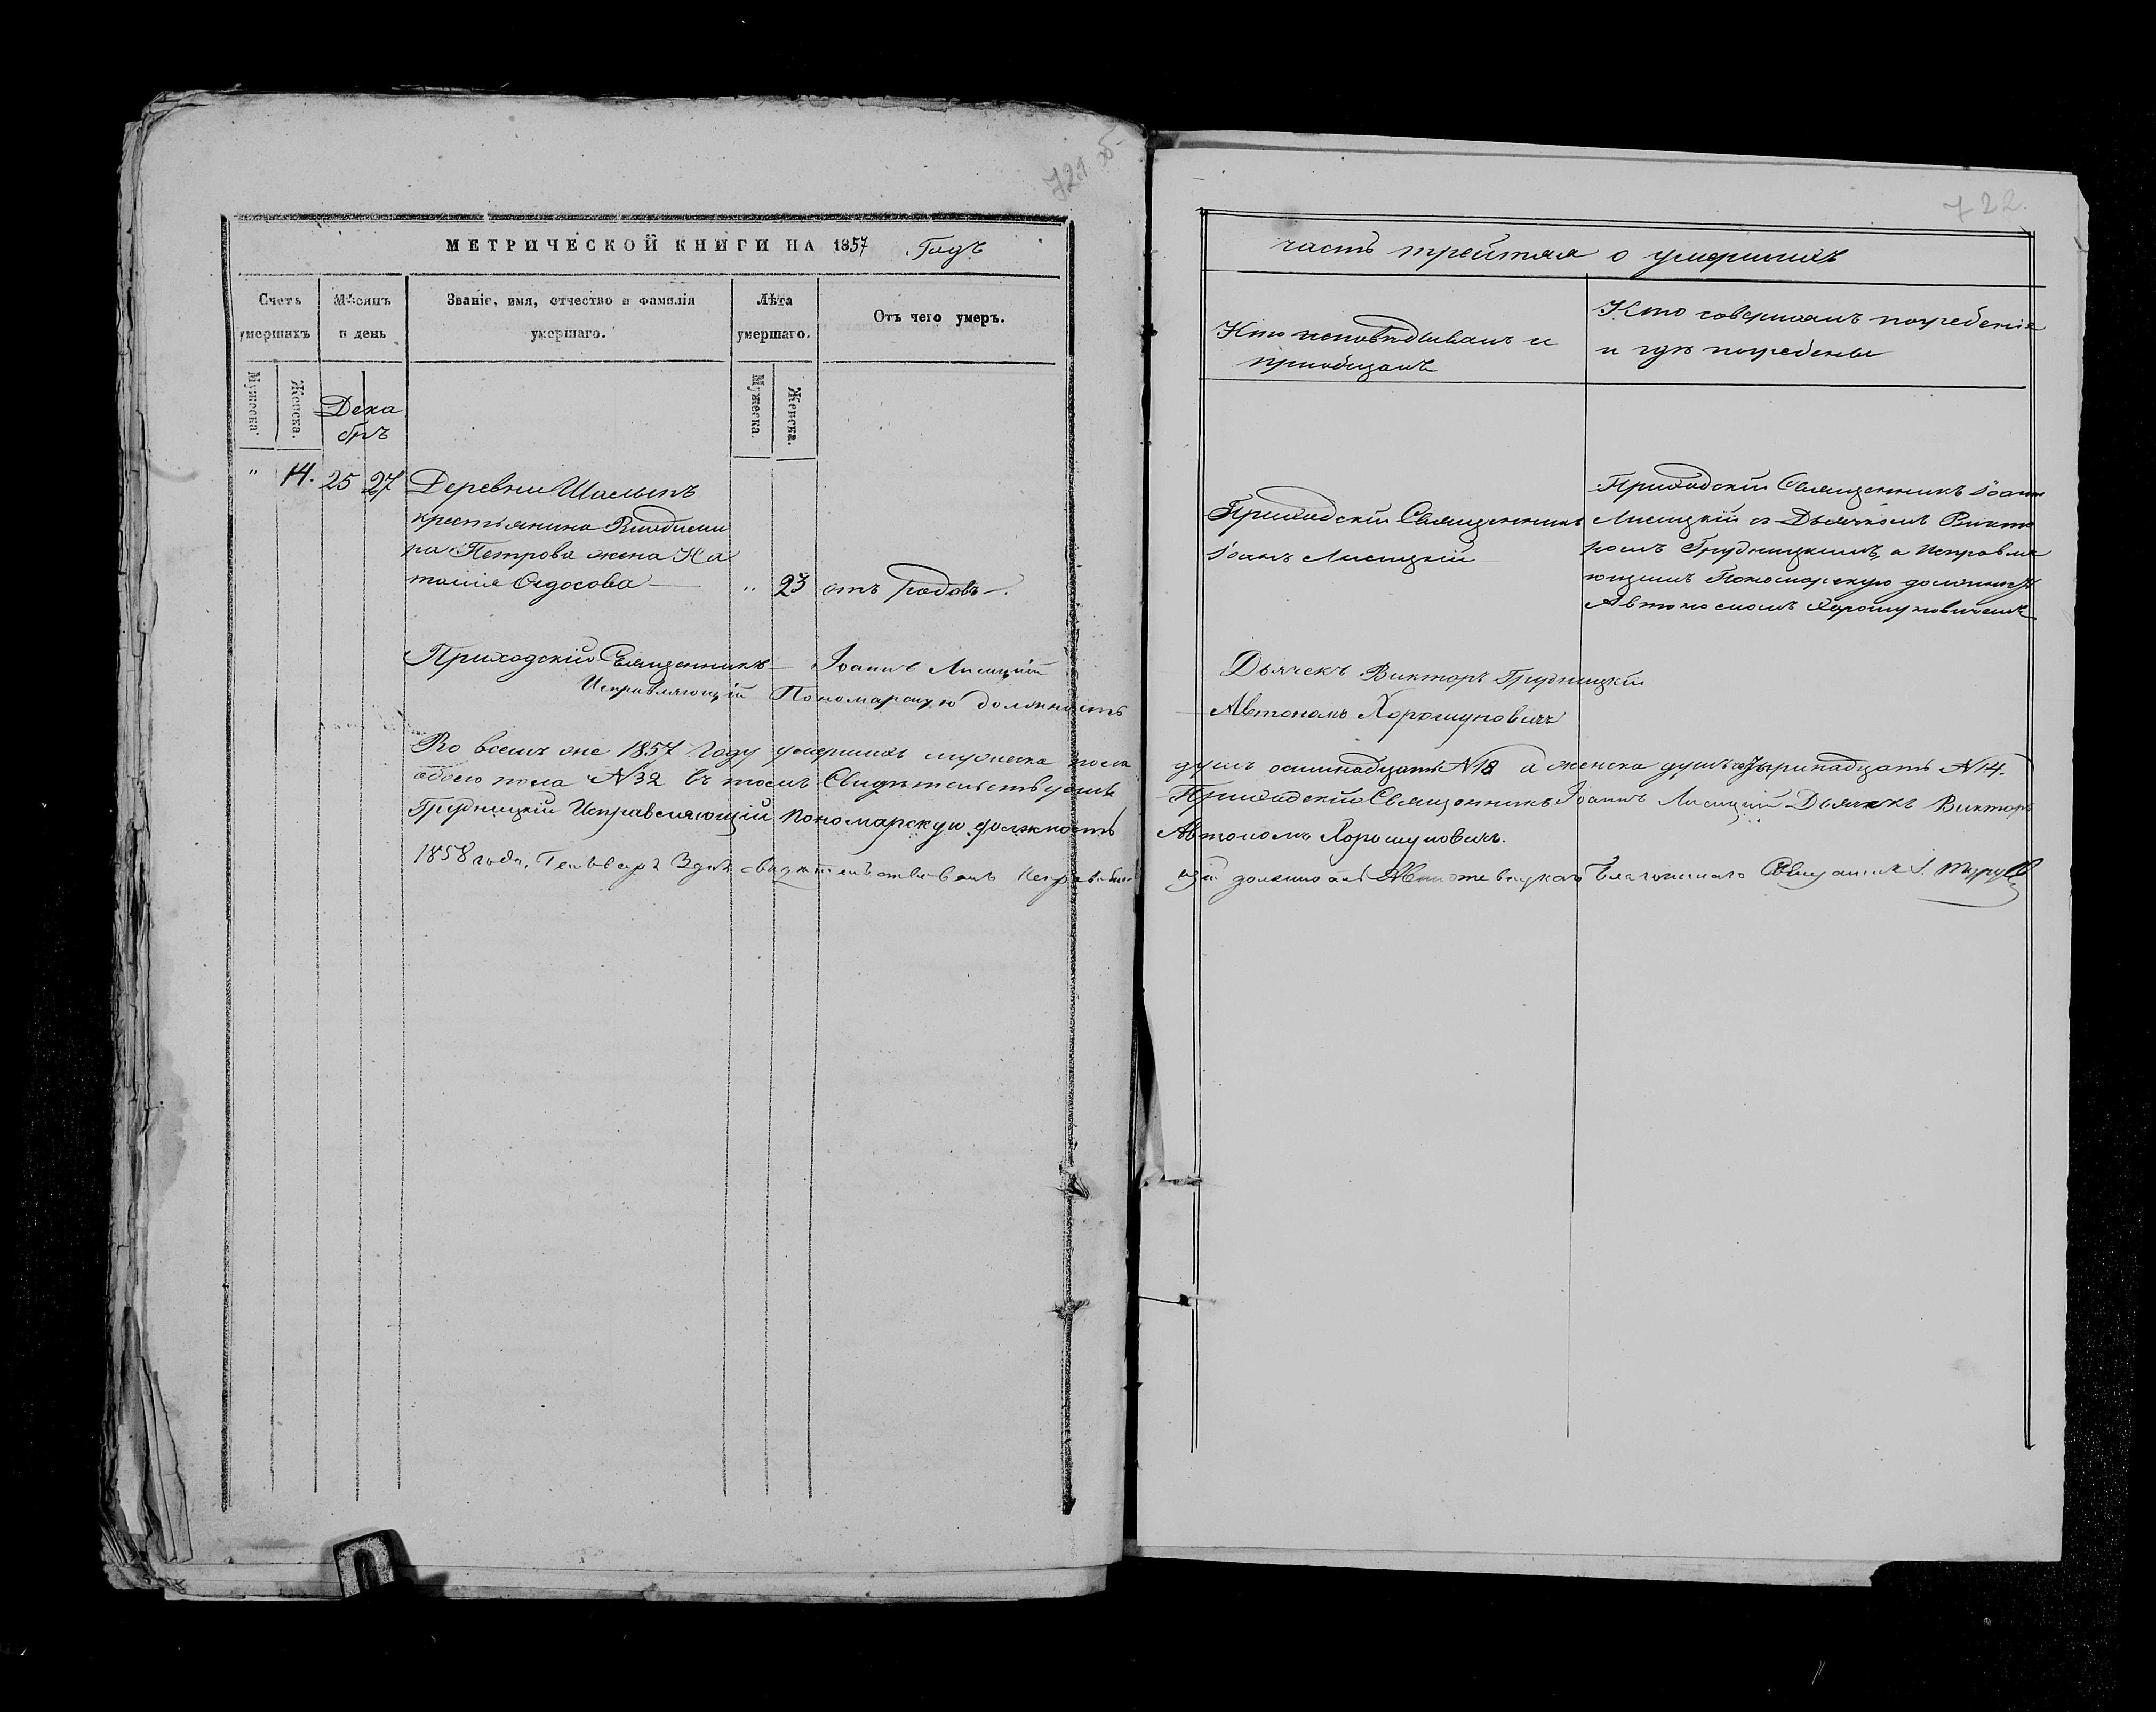 721 об
МЕТРИЧЕСКОЙ КНИГИ НА 1857 Годъ
Счетъ умершихъ
Мѣсяцъ и день
Званіе, имя, отчество и фамилія умершаго.
Лѣта умершаго.
Отъ чего умеръ.
Мужеска.
Женска.
Дека
брь
Мужеска.
Женска.
" 14. 25 27 Деревни
крестьянина
на Петрова жена На
талія Ѳедосова — " 23 отъ родовъ.
Приходскій Священникъ — Іоаннъ Лисицкій
Исправляющій Пономарскую должность
Во всемъ оне 1857 году умершихъ мужеска пола
обоего пола №32 въ томъ Свидѣтельствуемъ
Грудницкій Исправляющій Пономарскую должность
1858 года, Генваря 3 дня
722.
часть третьяя о умершихъ
Кто исповѣдывалъ и
пріобщалъ
Кто совершалъ погребеніе
и гдѣ погребены
Приходскій Священникъ
Іоанъ Лисицкій
Приходскій Священникъ Іоанъ
Лисицкій съ Дьячкомъ Викто
ромъ Грудницкимъ, а Исправля
ющимъ Пономарскую должность
Автономомъ Хорошуновичемъ
Дьячекъ Викторъ Грудницкій
Автономъ Хорошуновичъ
душъ осминадцать №18 а женска душъ №14.
Приходскій Священникъ Іоаннъ Лисицкій Дьячекъ Викторъ
Автономъ Хорошуновичъ.
щій должность Священникъ І.